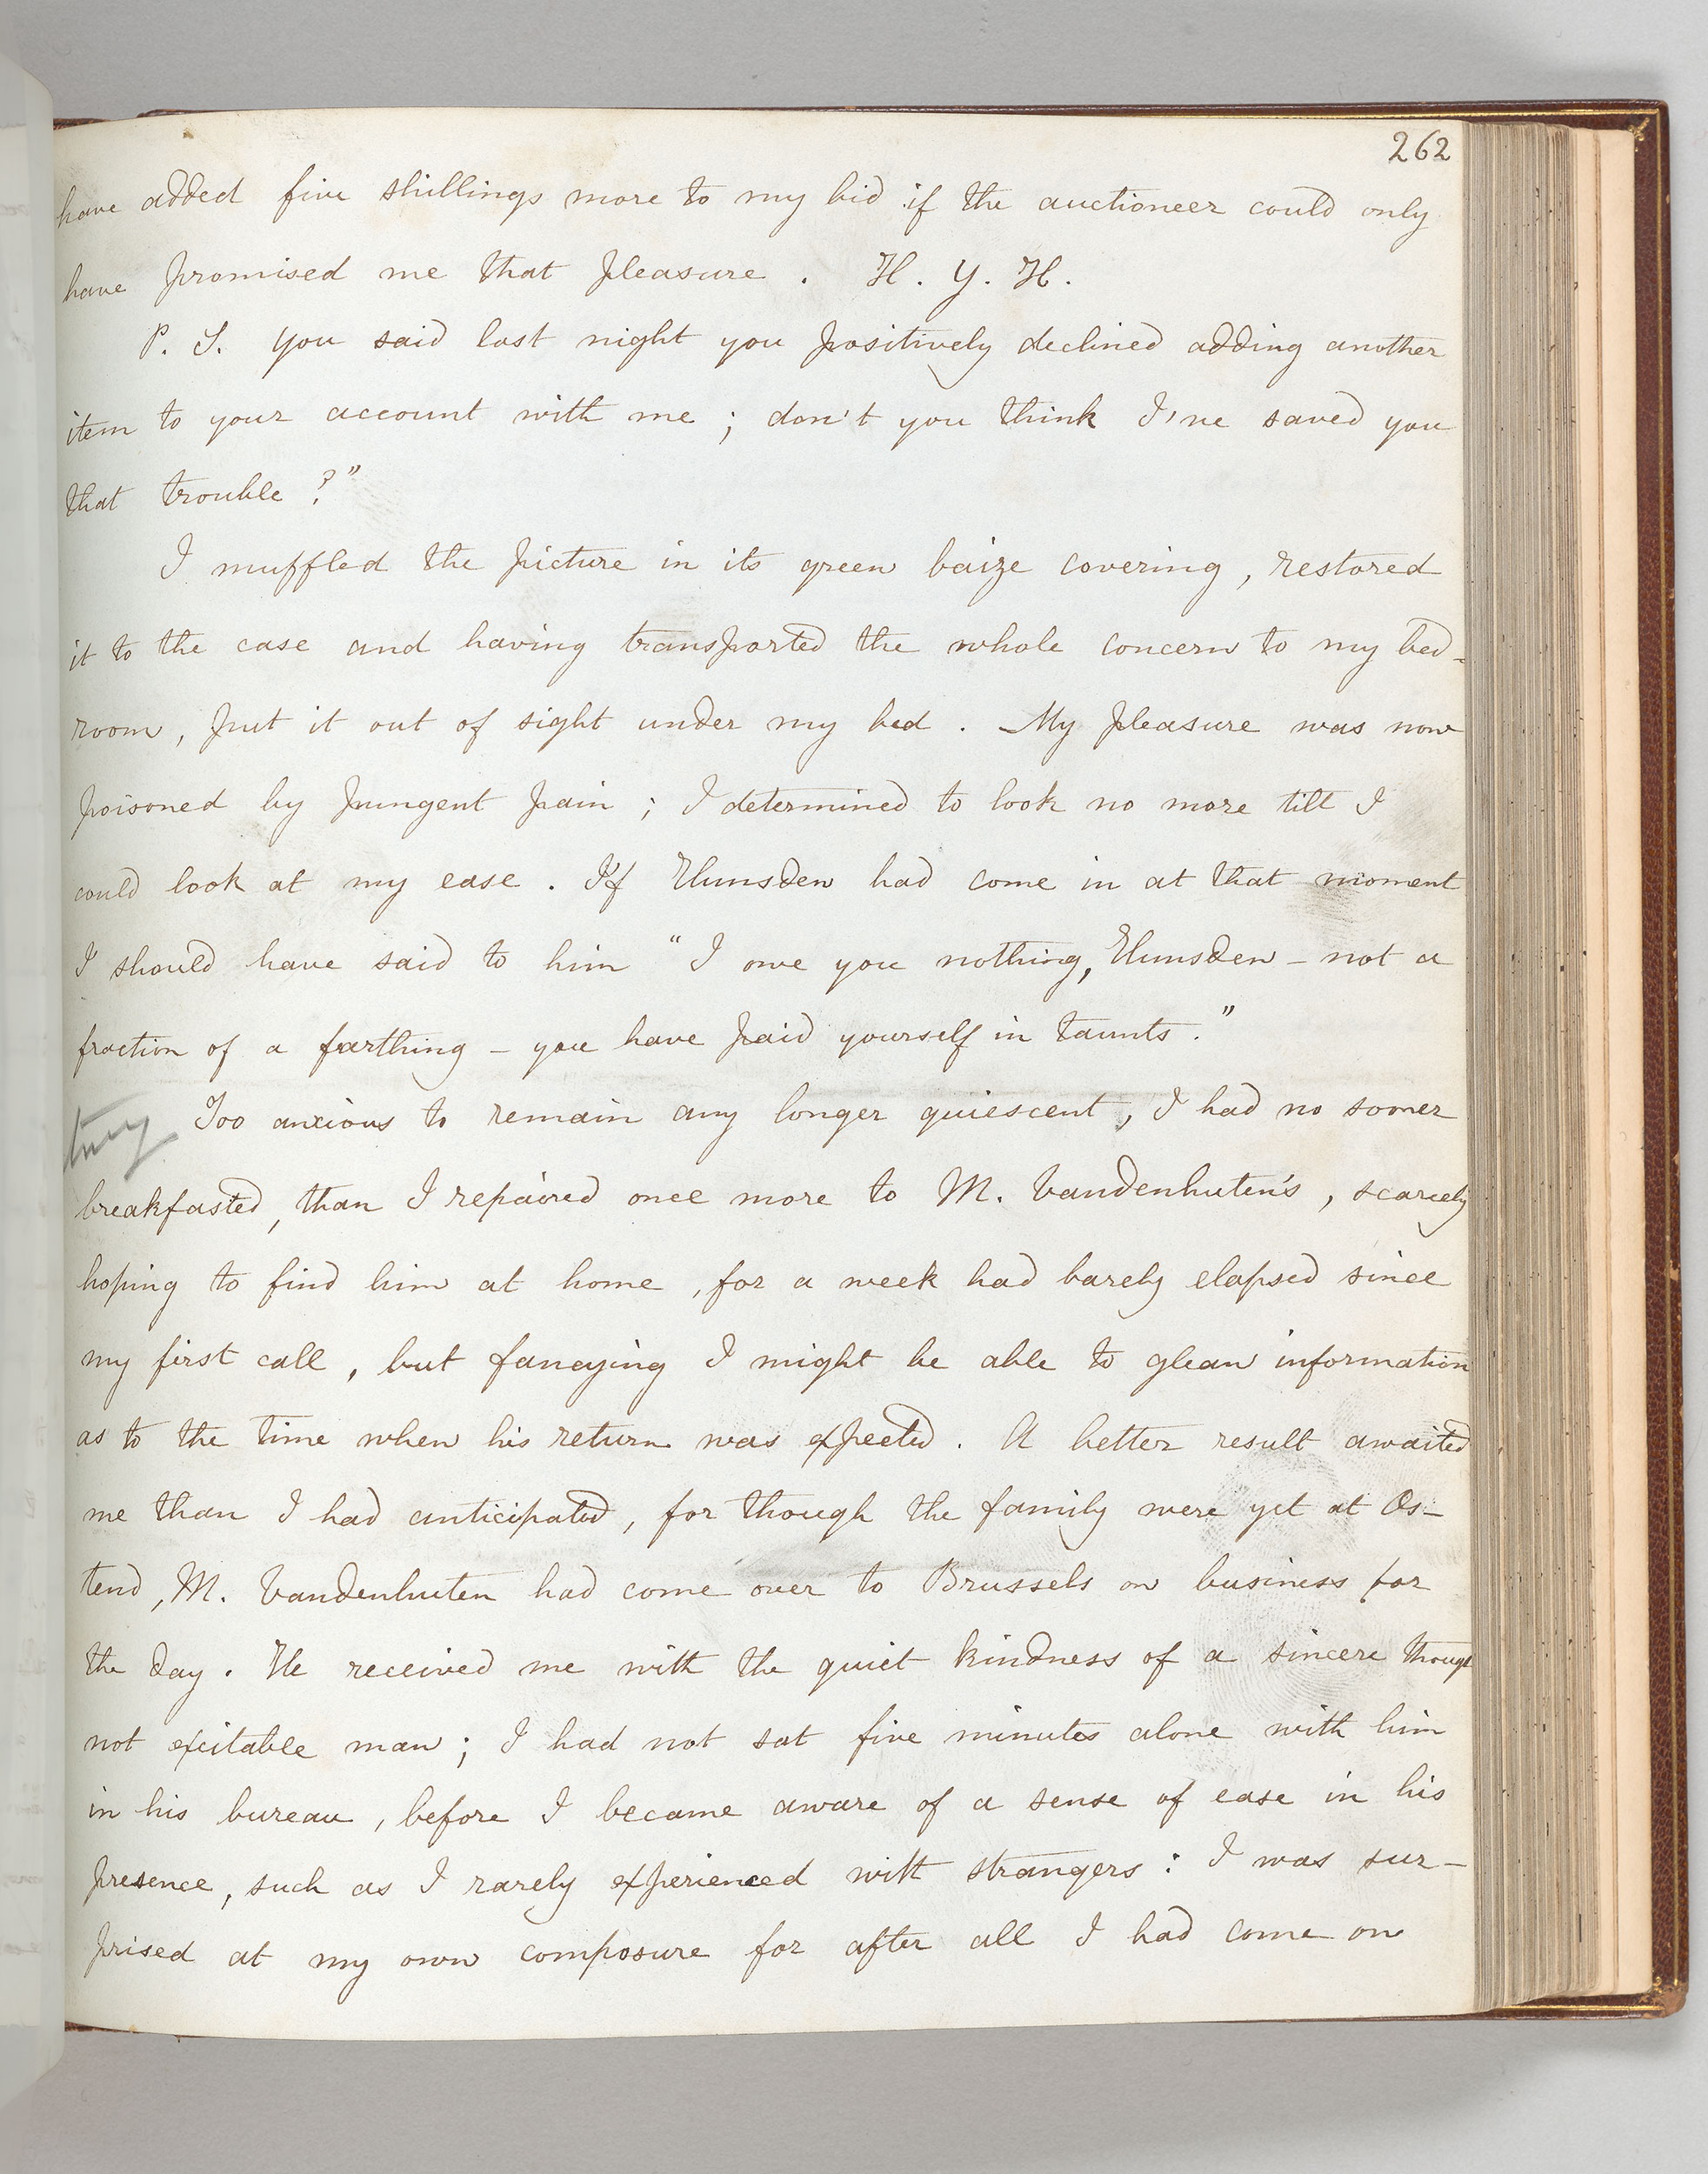 262
have added five shillings more to my bid if the auctioneer could only
have promised me that pleasure. H. Y. H.
P. S. You said last night you positively declined adding another
item to your account with me; don't you think I've saved you
that trouble?"
I muffled the picture in its green baize covering, restored
it to the case and having transported the whole concern to my bed-
room, put it out of sight under my bed. My pleasure was now
poisoned by pungent pain; I determined to look no more till I
could look at my ease. If Hunsden had come in at that moment
I should have said to him "I owe you nothing, Hunsden - not a
fraction of a farthing - you have paid yourself in taunts."
Too anxious to remain any longer quiescent, I had no sooner
breakfasted, than I repaired once more to M. Vandenhuten's, scarcely
hoping to find him at home, for a week had barely elapsed since
my first call, but fancying I might be able to glean information
as to the time when his return was expected. A better result awaited
me than I had anticipated, for though the family were yet at Os-
tend, M. Vandenhuten had come over to Brussels on business for
the day. He received me with the quiet kindness of a sincere though
not excitable man; I had not sat five minutes alone with him
in his bureau, before I became aware of a sense of ease in his
presence, such as I rarely experienced with strangers: I was sur-
prised at my own composure for after all I had come on